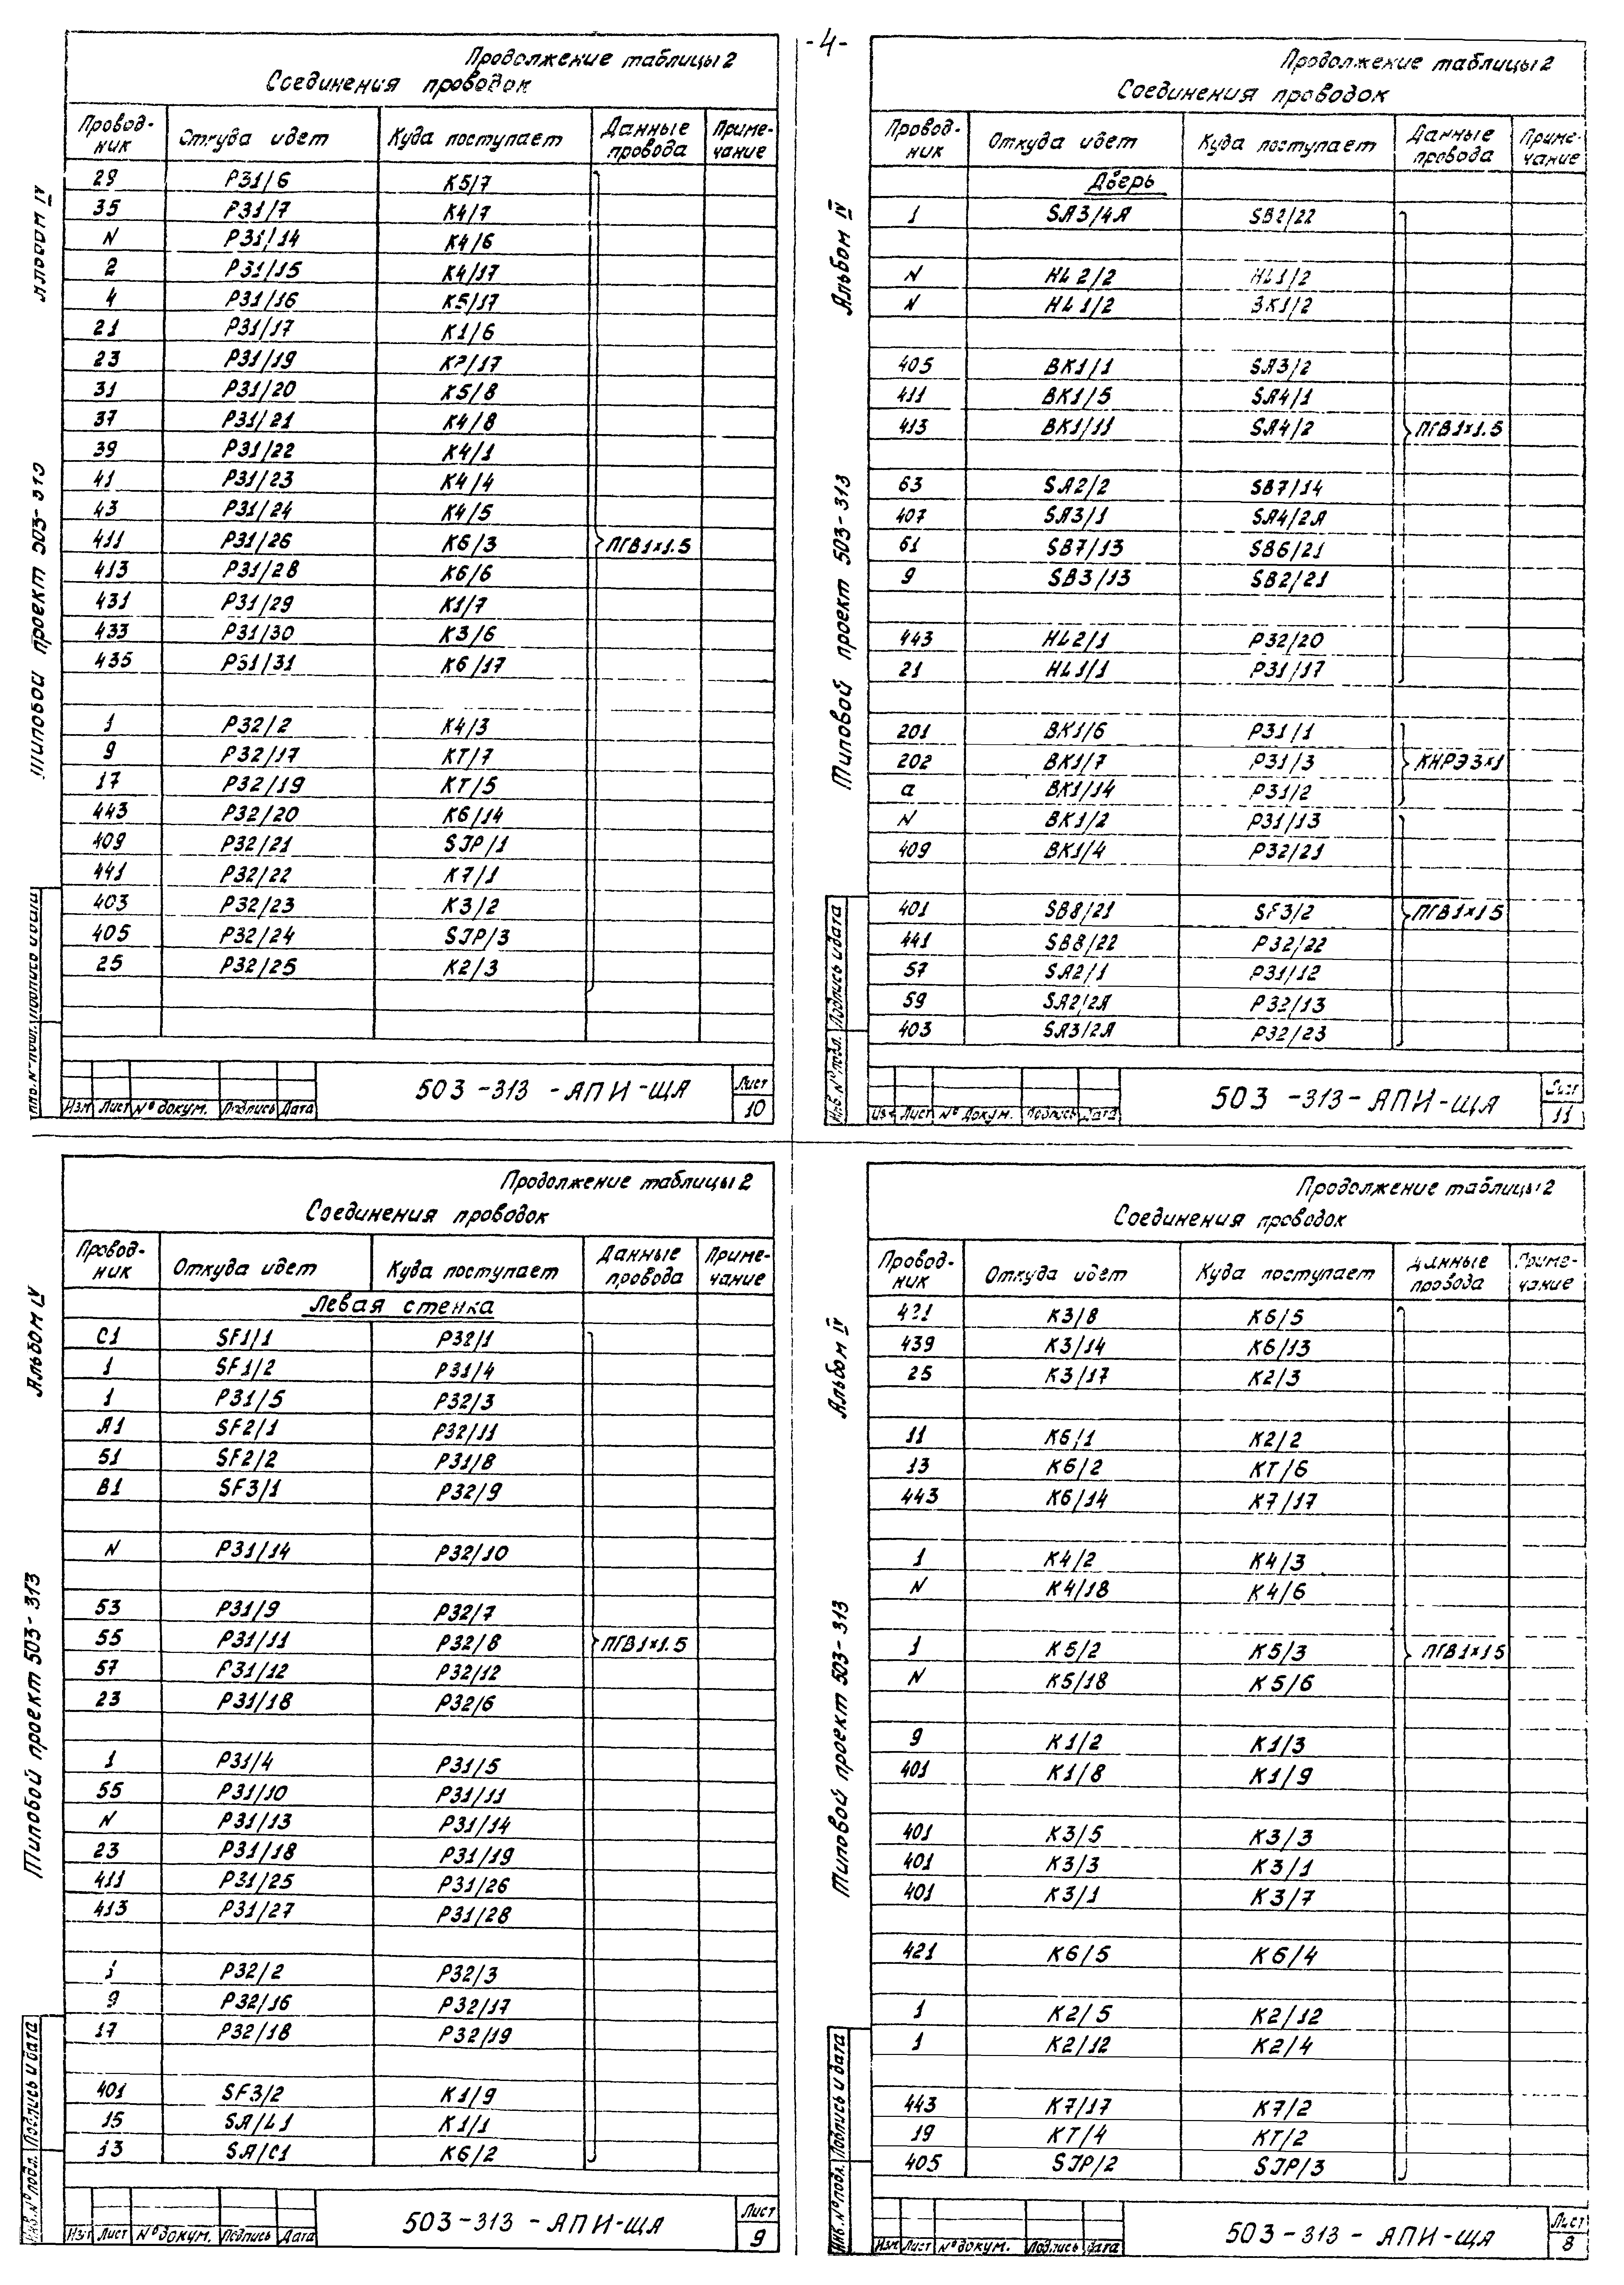 -4-
Продолжение таблицы 2
Соединения проводок
Провод-ник Откуда идет Куда поступает Данные провода Приме-чание
29 Р31/6 К5/7
35 Р31/7 К4/7
N Р31/14 К4/6
2 Р31/15 К4/17
4 Р31/16 К5/17
21 Р31/17 К1/6
23 Р31/19 К2/17
31 Р31/20 К5/8
37 Р31/21 К4/8
39 Р31/22 К4/1
41 Р31/23 К4/4
43 Р31/24 К4/5
411 Р31/26 К6/3 ПГВ1×1.5
413 Р31/28 К6/6
431 Р31/29 К1/7
433 Р31/30 К3/6
435 Р31/31 К6/17
1 Р32/2 К4/3
9 Р32/17 КТ/7
17 Р32/19 КТ/5
443 Р32/20 К6/14
409 Р32/21 SJP/1
441 Р32/22 К7/1
403 Р32/23 К3/2
405 Р32/24 SJP/3
25 Р32/25 К2/3
Изм Лист № докум. Подпись Дата
503-313-АПИ-ЩА
Лист 10
Альбом IV
Типовой проект 503-313
Инв. № подл. Подпись и дата
Продолжение таблицы 2
Соединения проводок
Провод-ник Откуда идет Куда поступает Данные провода Приме-чание
Дверь
1 SA3/4A SB2/22
N HL2/2 HL1/2
N HL1/2 ВК1/2
405 ВК1/1 SA3/2
411 ВК1/5 SA4/1
413 ВК1/11 SA4/2 ПГВ1×1.5
63 SA2/2 SB7/14
407 SA3/1 SA4/2A
61 SB7/13 SB6/21
9 SB3/13 SB2/21
443 HL2/1 Р32/20
21 HL1/1 Р31/17
201 ВК1/6 Р31/1
202 ВК1/7 Р31/3 КНРЭ3×1
а ВК1/14 Р31/2
N ВК1/2 Р31/13
409 ВК1/4 Р32/21
401 SB8/21 SF3/2 ПГВ1×1.5
441 SB8/22 Р32/22
57 SA2/1 Р31/12
59 SA2/2A Р32/13
403 SA3/2A Р32/23
Изм Лист № докум. Подпись Дата
503-313-АПИ-ЩА
Лист 11
Альбом IV
Типовой проект 503-313
Инв. № подл. Подпись и дата
Продолжение таблицы 2
Соединения проводок
Провод-ник Откуда идет Куда поступает Данные провода Приме-чание
Левая стенка
С1 SF1/1 Р32/1
1 SF1/2 Р31/4
1 Р31/5 Р32/3
А1 SF2/1 Р32/11
51 SF2/2 Р31/8
В1 SF3/1 Р32/9
N Р31/14 Р32/10
53 Р31/9 Р32/7
55 Р31/11 Р32/8 ПГВ1×1.5
57 Р31/12 Р32/12
23 Р31/18 Р32/6
1 Р31/4 Р31/5
55 Р31/10 Р31/11
N Р31/13 Р31/14
23 Р31/18 Р31/19
411 Р31/25 Р31/26
413 Р31/27 Р31/28
1 Р32/2 Р32/3
9 Р32/16 Р32/17
17 Р32/18 Р32/19
401 SF3/2 К1/9
15 SA/L1 К1/1
13 SA/C1 К6/2
Изм Лист № докум. Подпись Дата
503-313-АПИ-ЩА
Лист 9
Альбом IV
Типовой проект 503-313
Инв. № подл. Подпись и дата
Продолжение таблицы 2
Соединения проводок
Провод-ник Откуда идет Куда поступает Данные провода Приме-чание
421 К3/8 К6/5
439 К3/14 К6/13
25 К3/17 К2/3
11 К6/1 К2/2
13 К6/2 КТ/6
443 К6/14 К7/17
1 К4/2 К4/3
N К4/18 К4/6
1 К5/2 К5/3 ПГВ1×1.5
N К5/18 К5/6
9 К1/2 К1/3
401 К1/8 К1/9
401 К3/5 К3/3
401 К3/3 К3/1
401 К3/1 К3/7
421 К6/5 К6/4
1 К2/5 К2/12
1 К2/12 К2/4
443 К7/17 К7/2
19 КТ/4 КТ/2
405 SJP/2 SJP/3
Изм Лист № докум. Подпись Дата
503-313-АПИ-ЩА
Лист 8
Альбом IV
Типовой проект 503-313
Инв. № подл. Подпись и дата